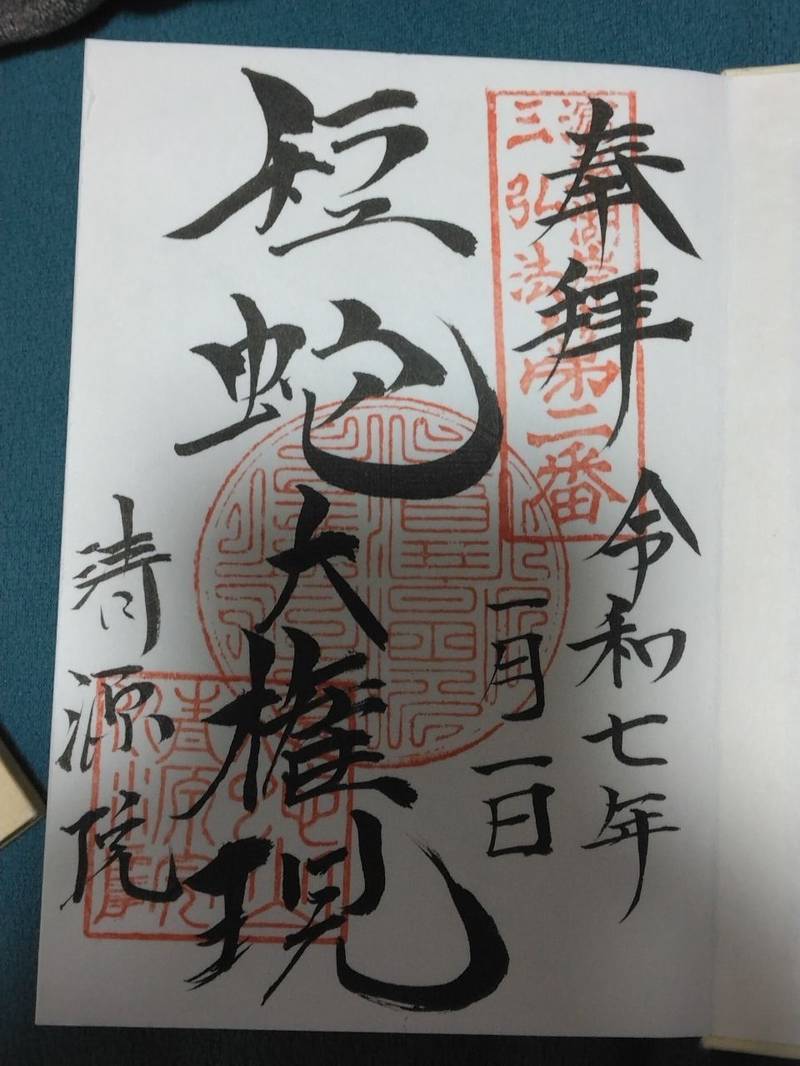 奉拝
令和七年
一月一日
三弘法
第二番
短蛇大権現
清源院